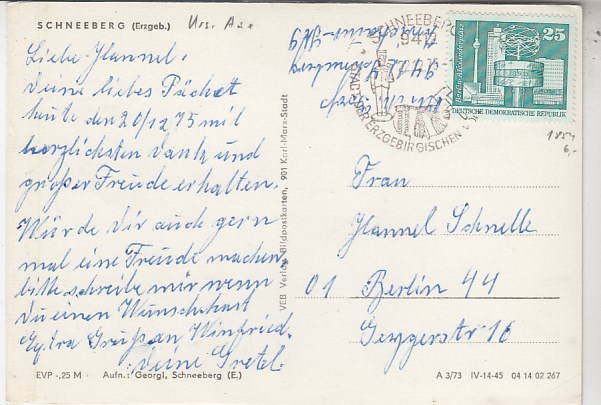 SCHNEEBERG (Erzgeb.)
Liebe Hannel.
deine liebes Päckat
heute den 20/12 75 mit
herzlichsten dank und
großer Freude erhalten.
Würde dir auch gern
mal eine Freude machen
bitte schreibe mir wenn
du einen Wunsch hast
Extra Grüß an Winfried.
deine Gretel.
EVP -,25 M Aufn.: Georgi, Schneeberg (E.)
VEB Verlag Bildpostkarten, 901 Karl-Marx-Stadt
SCHNEEBERG
9412
ERZGEBIRGISCHEN
25
Berlin-Alexanderplatz
DEUTSCHE DEMOKRATISCHE REPUBLIK
6,-
Frau
Hannel Schnelle
01 Berlin 44
16
A 3/73 IV-14-45 04 14 02 267